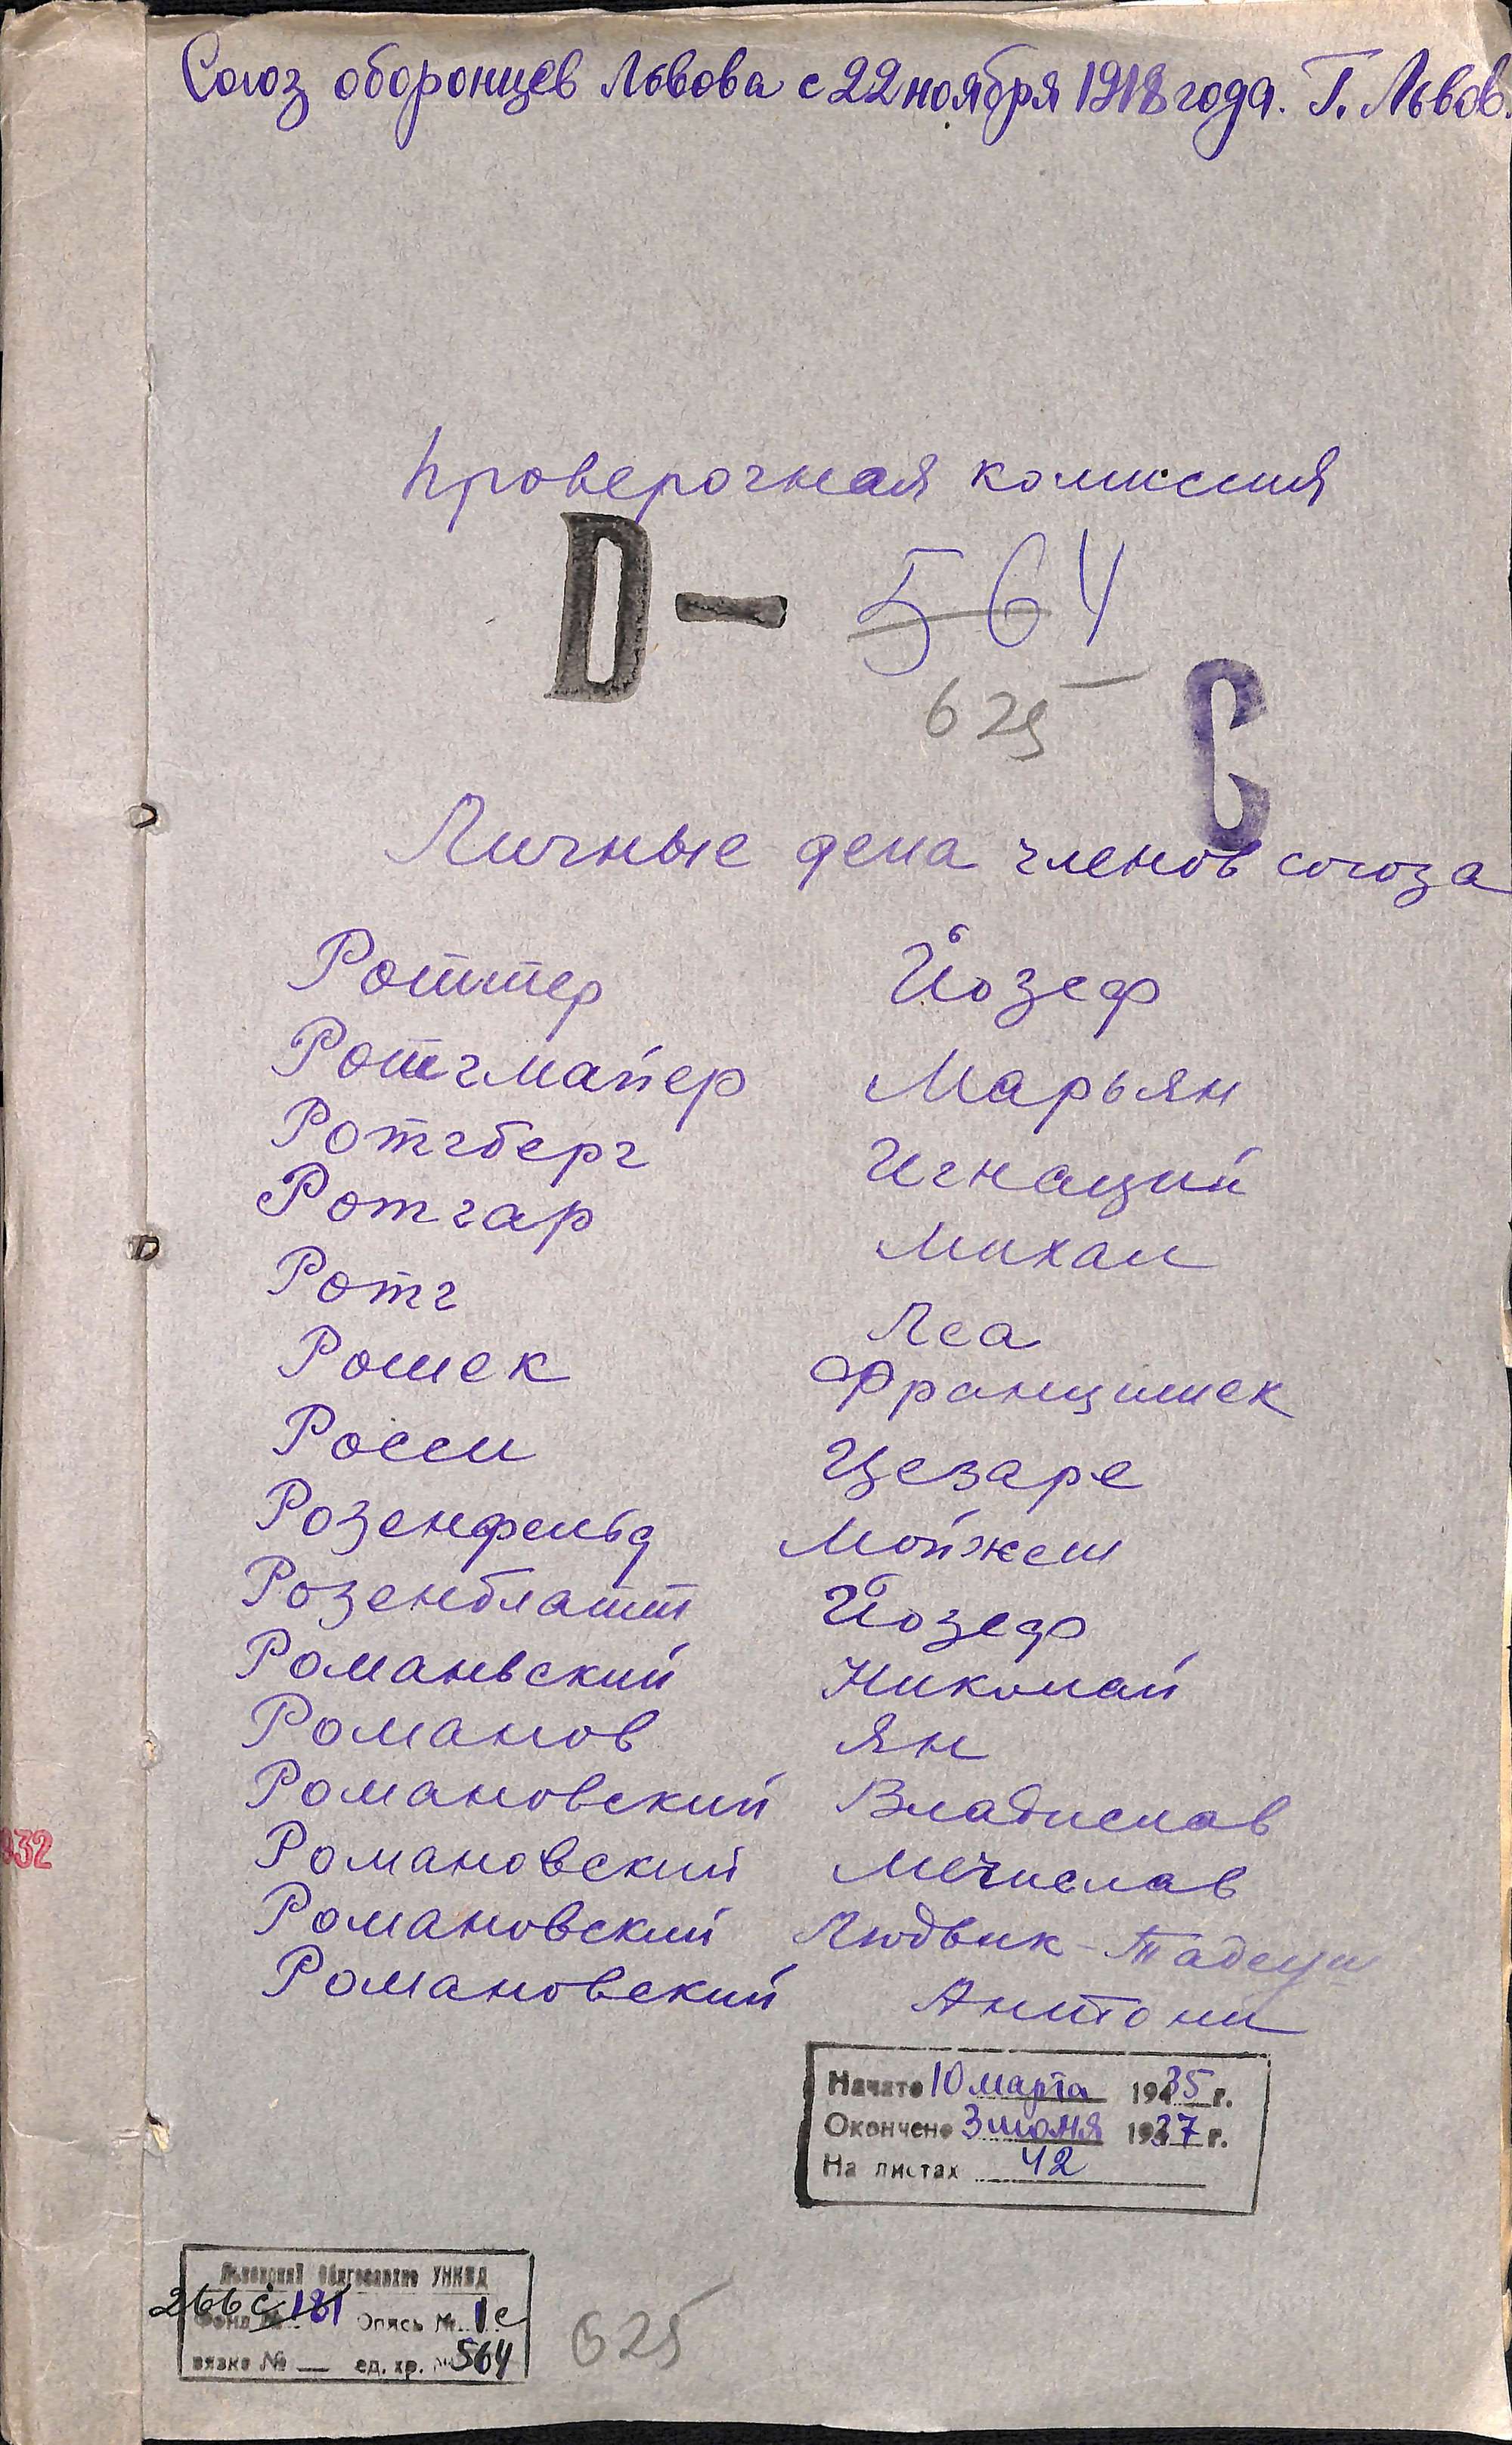 Союз оборонцев Львова с 22 ноября 1918 года. Г. Львов.
Проверочная комиссия
D – 564
625
С
Личные дела членов союза
Роттер Йозеф
Ротгмайер Марьян
Ротгберг Игнаций
Ротгар Михал
Ротг Леа
Рошек Францишек
Росси Цезаре
Розенфельд Мойжеш
Розенблатт Йозеф
Романьский Николай
Романов Ян
Романовский Владислав
Романовский Мечислав
Романовский Людвик-Тадеуш
Романовский Антони
932
Начато 10 марта 1935 г.
Окончено 3 июня 1937 г.
На листах 42
Облгосархив УНКВД
266с
Фонд № 181 Опись № 1с
вязка № — ед. хр. № 564
625